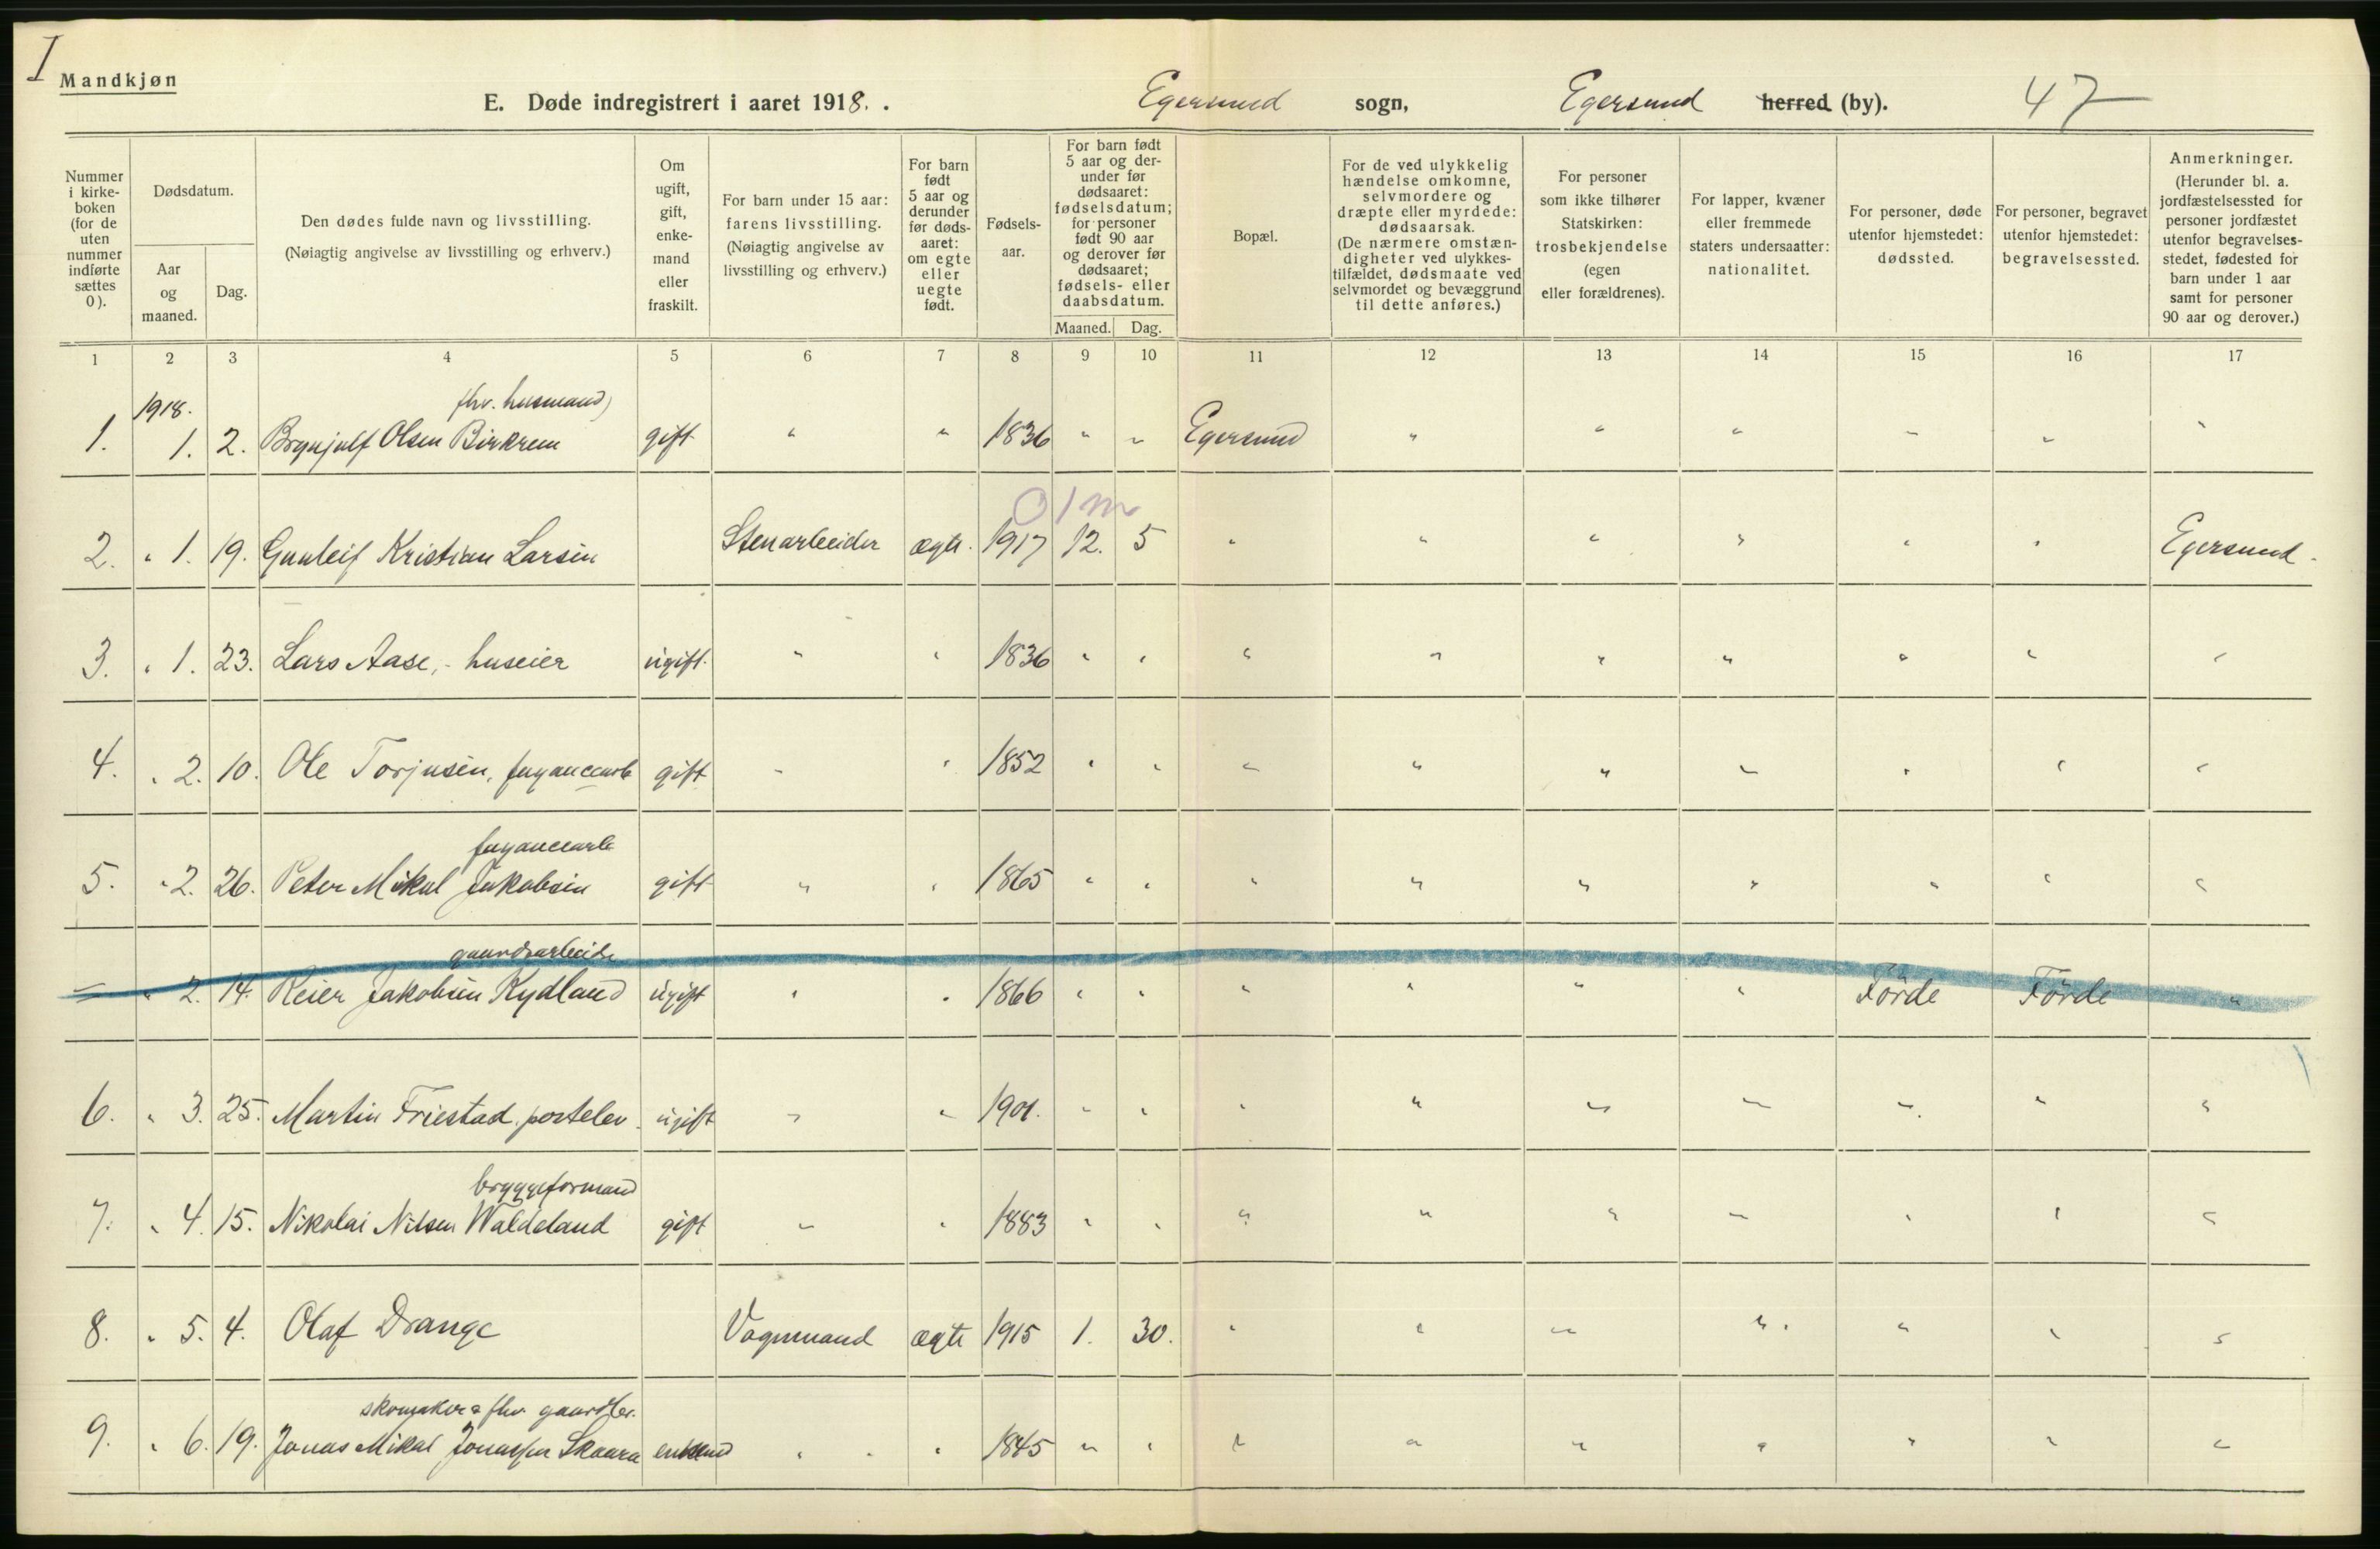 I
Mandkjøn
E. Døde indregistrert i aaret 1918. . Egersund sogn, Egersund herred (by). 47
Nummer i kirke- boken (for de uten nummer indførte sættes 0).
Dødsdatum.
Aar og maaned.
Dag.
Den dødes fulde navn og livsstilling.
(Nøiagtig angivelse av livsstilling og erhverv.)
Om ugift, gift, enke- mand eller fraskilt.
For barn under 15 aar: farens livsstilling.
(Nøiagtig angivelse av livsstilling og erhverv.)
For barn født 5 aar og derunder før døds- aaret: om egte eller uegte født.
Fødsels- aar.
For barn født 5 aar og der- under før dødsaaret: fødselsdatum; for personer født 90 aar og derover før dødsaaret; fødsels- eller daabsdatum.
Maaned. Dag.
Bopæl.
For de ved ulykkelig hændelse omkomne, selvmordere og dræpte eller myrdede: dødsaarsak.
(De nærmere omstæn- digheter ved ulykkes- tilfældet, dødsmaate ved selvmordet og bevæggrund til dette anføres.)
For personer som ikke tilhører Statskirken: trosbekjendelse (egen eller forældrenes).
For lapper, kvæner eller fremmede staters undersaatter: nationalitet.
For personer, døde utenfor hjemstedet: dødssted.
For personer, begravet utenfor hjemstedet: begravelsessted.
Anmerkninger.
(Herunder bl. a. jordfæstelsessted for personer jordfæstet utenfor begravelses- stedet, fødested for barn under 1 aar samt for personer 90 aar og derover.)
1 2 3 4 5 6 7 8 9 10 11 12 13 14 15 16 17
1918. fhv. husmand)
1. 1. 2. Brynjulf Olsen Birkrem gift " " 1836 " " Egersund " " " " " "
0 1 m
2. " 1. 19. Gunleif Kristian Larsen Stenarbeider ægte. 1917 12. 5 " " " " " " Egersund.
3. " 1. 23. Lars Aase, - huseier ugift. " " 1836 " " " " " " " " "
4. " 2. 10. Ole Torjusen, fayancearb gift " " 1852 " " " " " " " " "
fayancearb
5. " 2. 26. Peter Mikal Jakobsen gift " " 1865 " " " " " " " " "
gaardsarbeider
" 2. 14. Reier Jakobsen Rydland ugift " " 1866 " " " " " " Førde Førde "
6. " 3. 25. Martin Friestad, postelev. ugift " " 1901. " " " " " " " " "
bryggeformand
7. " 4. 15. Nikolai Nilsen Waldeland gift " " 1883 " " " " " " " " "
8. " 5. 4. Olaf Drange Vognmand ægte 1915 1. 30. " " " " " " "
skomaker & fhv. gaardbr.
9. " 6. 19. Jonas Mikal Jonassen Skaara enkemd " " 1845 " " " " " " " " "